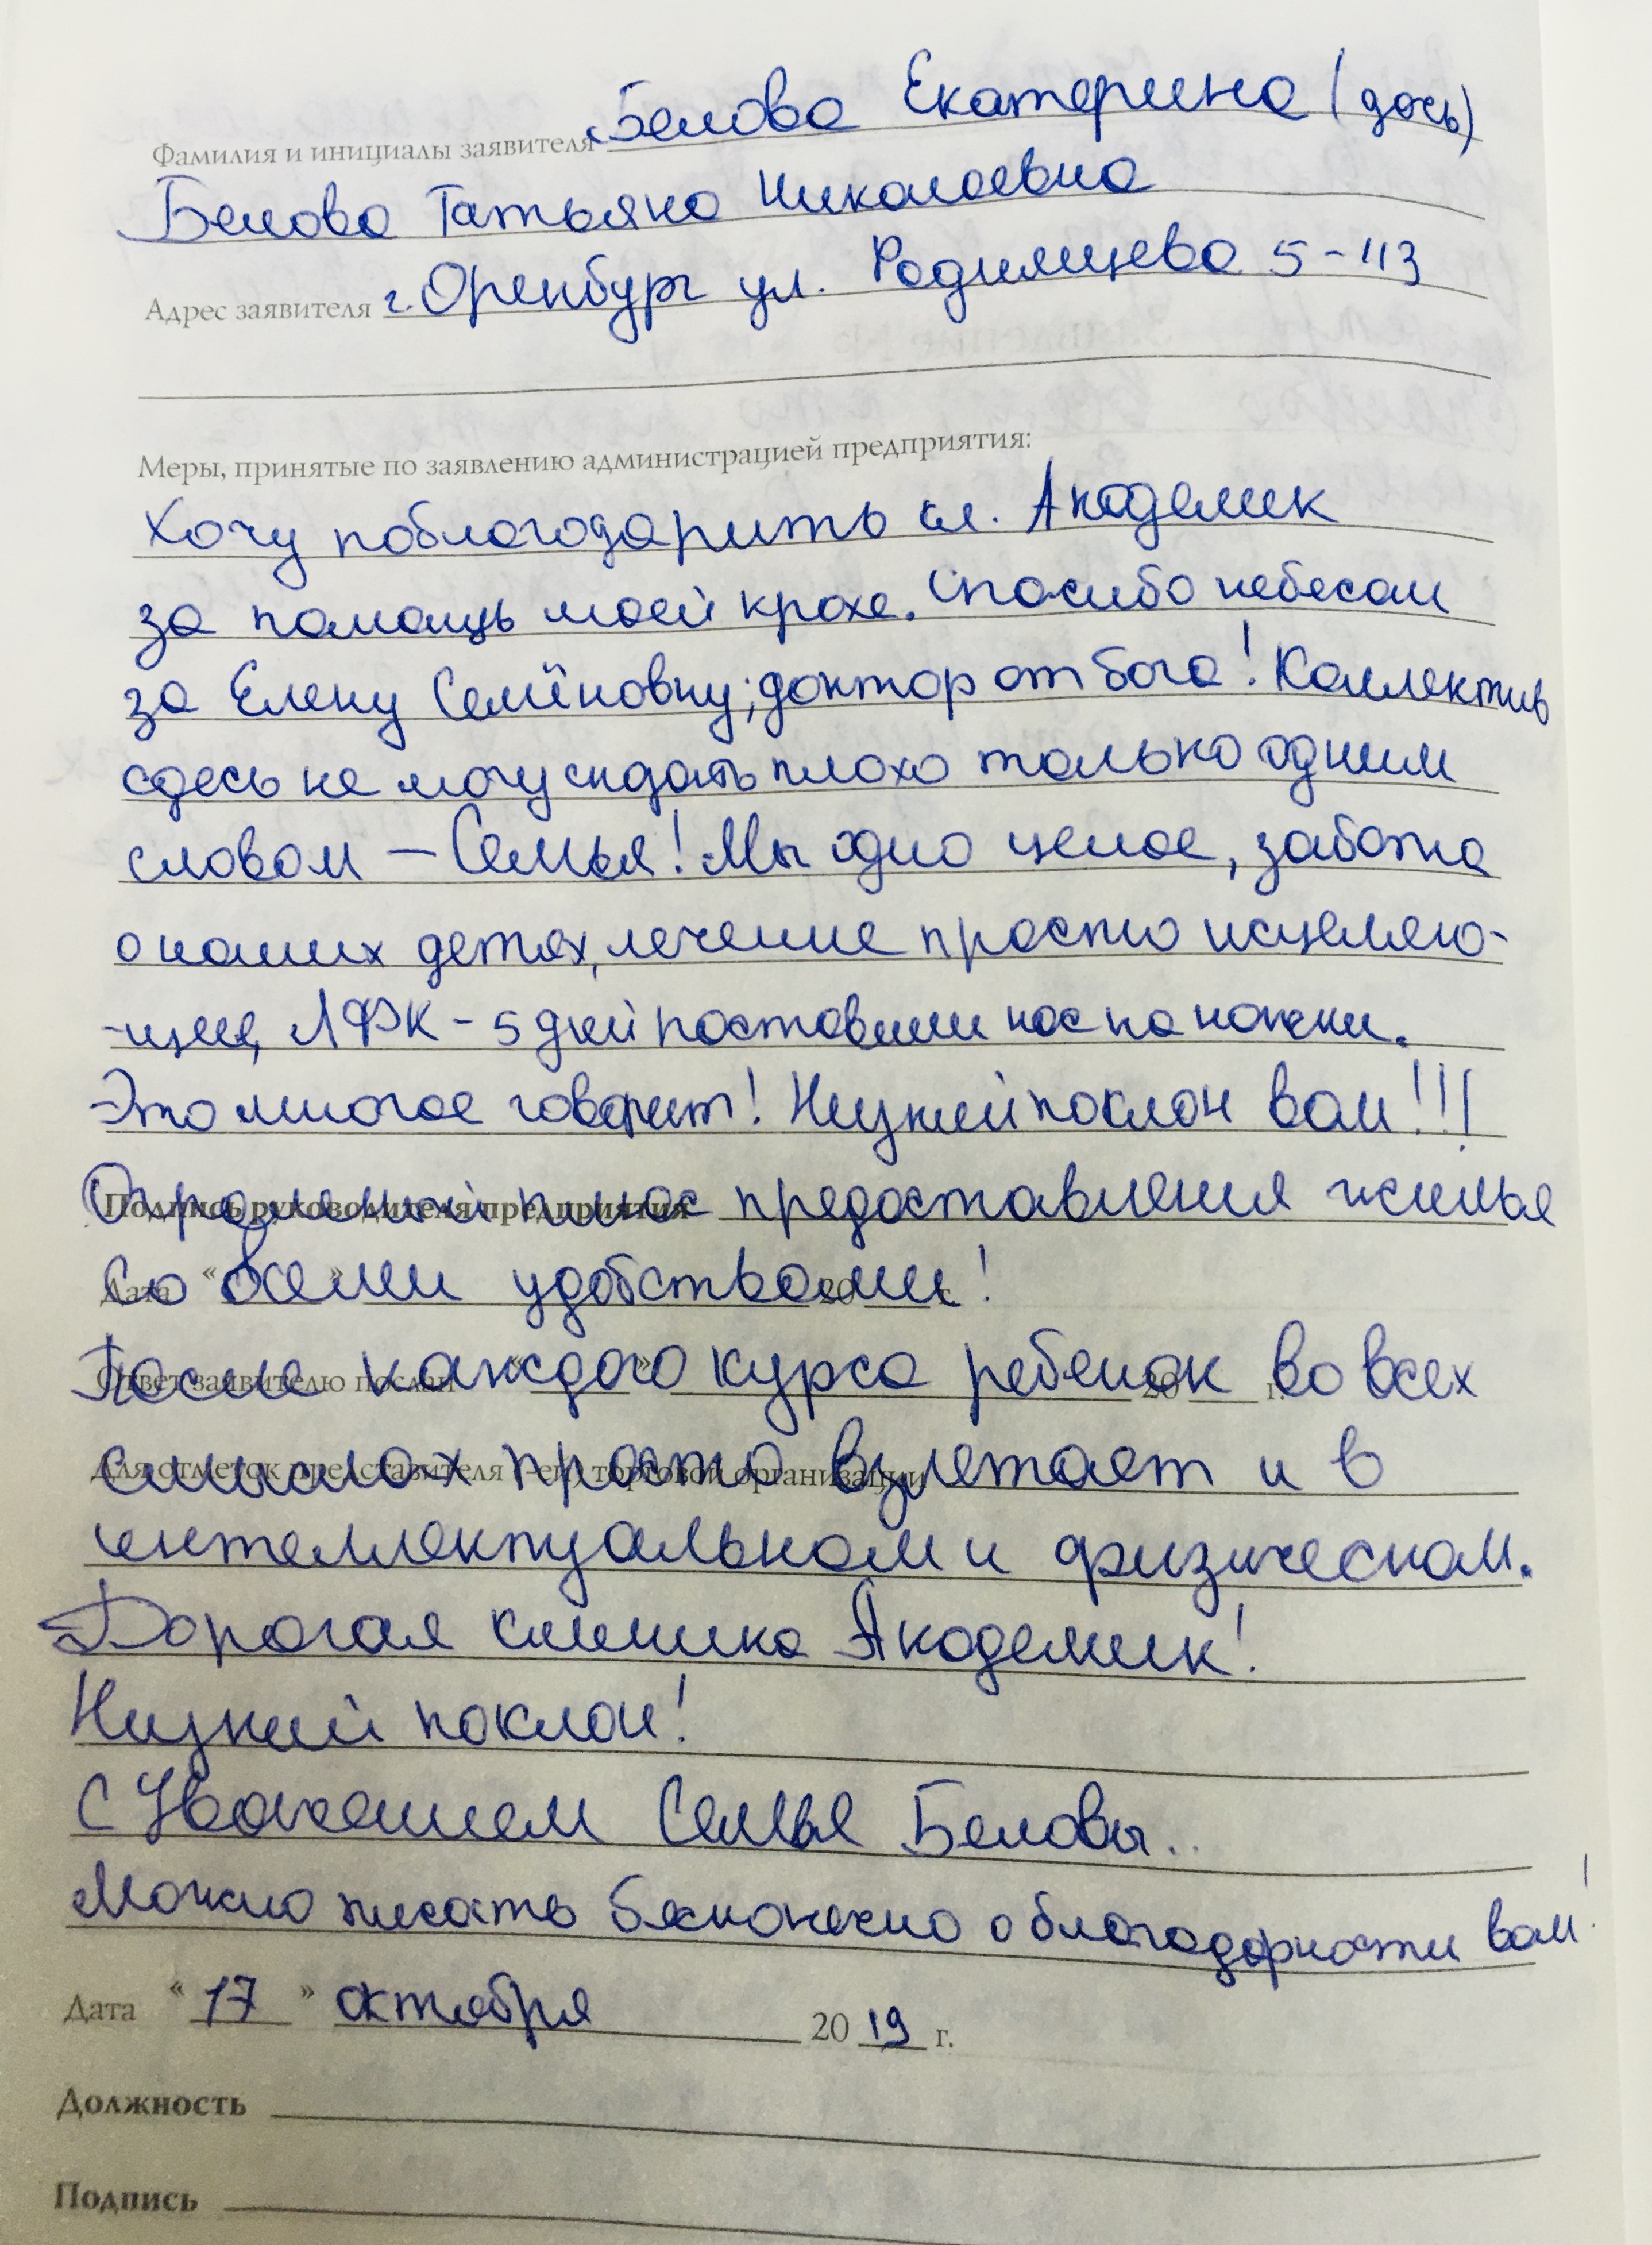 Фамилия и инициалы заявителя Белова Екатерина (дочь)
Белова Татьяна Николаевна
Адрес заявителя г. Оренбург ул. Родимцева 5-113
Меры, принятые по заявлению администрацией предприятия:
Хочу поблагодарить Академик
за помощь моей крохе. Спасибо небесам
за Елену Семёновну; доктор от бога! Коллектив
сдесь не могу плохо только одним
словом – Семья! Мы одно целое, забота
о наших детях, лечение просто исцеляю-
-щие, ЛФК - 5 дней поставили нас на ножки.
Это многое говорит! Низкий поклон вам!!!
Подпись руководителя предприятия
Огромный плюс предоставления жилья
Дата « » 20 г.
Со всеми удобствами!
Ответ заявителю послан « » 20 г.
После каждого курса ребенок во всех
Для отметок представителя (-ей) торговой организации
смыслах просто взлетает и в
интеллектуальном и физическом.
Дорогая клиника Академик!
Низкий поклон!
С Уважением Семья Беловы..
Можно писать бесконечно о благодарности вам!
Дата « 17 » октября 2019 г.
Должность
Подпись